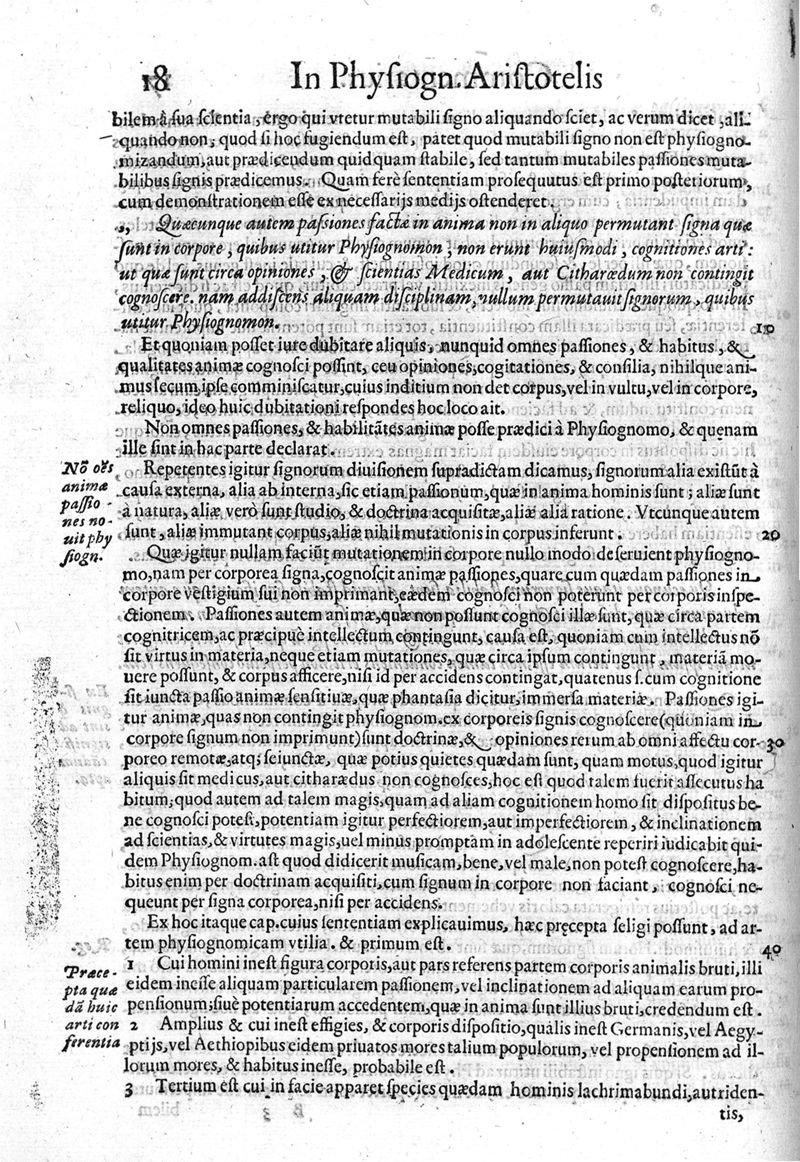 18 In Phyſiogn. Ariſtotelis
bilem à ſua ſcientia, ergo qui vtetur mutabili ſigno aliquando ſciet, ac verum dicet, ali-
quando non, quod ſi hoc fugiendum eſt, patet quod mutabili ſigno non eſt phyſiogno-
mizandum, aut prædicendum quidquam ſtabile, ſed tantum mutabiles paſſiones muta-
bilibus ſignis prædicemus. Quam ferè ſententiam proſequutus eſt primo poſteriorum,
cum demonſtrationem eſſe ex neceſſarijs medijs oſtenderet.
3, Quæcunque autem paſſiones factæ in anima non in aliquo permutant ſigna quæ
ſunt in corpore, quibus utitur Phyſiognomon, non erunt huiuſmodi, cognitiones arti:
ut quæ ſunt circa opiniones, & ſcientias Medicum, aut Citharædum non contingit
cognoſcere. nam addiſcens aliquam diſciplinam, nullum permutauit ſignorum, quibus
utitur Phyſiognomon.
10
Et quoniam poſſet iure dubitare aliquis, nunquid omnes paſſiones, & habitus, &
qualitates animæ cognoſci poſſint, ceu opiniones, cogitationes, & conſilia, nihilque ani-
mus ſecum ipſe comminiſcatur, cuius inditium non det corpus, vel in vultu, vel in corpore,
reliquo, ideo huic dubitationi reſpondes hoc loco ait.
Non omnes paſſiones, & habilitates animæ poſſe prædici à Phyſiognomo, & quenam
ille ſint in hac parte declarat.
Nō oēs
animæ
paſſio-
nes no-
uit phy
ſiogn.
Repetentes igitur ſignorum diuiſionem ſupradictam dicamus, ſignorum alia exiſtūt à
cauſa externa, alia ab interna, ſic etiam paſſionum, quæ in anima hominis ſunt; aliæ ſunt
à natura, aliæ verò ſunt ſtudio, & doctrina acquiſitæ, aliæ alia ratione. Vtcunque autem
ſunt, aliæ immutant corpus, aliæ nihil mutationis in corpus inferunt.
20
Quæ igitur nullam faciūt mutationem in corpore nullo modo deſeruient phyſiogno-
mo, nam per corporea ſigna, cognoſcit animæ paſſiones, quare cum quædam paſſiones in
corpore veſtigium ſui non imprimant, eædem cognoſci non poterunt per corporis inſpe-
ctionem. Paſſiones autem animæ, quæ non poſſunt cognoſci illæ ſunt, quæ circa partem
cognitricem, ac præcipuè intellectum contingunt, cauſa eſt, quoniam cum intellectus nō
ſit virtus in materia, neque etiam mutationes, quæ circa ipſum contingunt, materiā mo-
uere poſſunt, & corpus afficere, niſi id per accidens contingat, quatenus ſ. cum cognitione
ſit iuncta paſſio animæ ſenſitiuæ, quæ phantaſia dicitur, immerſa materiæ. Paſſiones igi-
tur animæ, quas non contingit phyſiognom. ex corporeis ſignis cognoſcere (quoniam in
corpore ſignum non imprimunt) ſunt doctrinæ, & opiniones rerum ab omni affectu cor-
30
poreo remotæ, atq; ſeiunctæ, quæ potius quietes quædam ſunt, quam motus, quod igitur
aliquis ſit medicus, aut citharædus non cognoſces, hoc eſt quod talem fuerit aſſecutus ha
bitum, quod autem ad talem magis, quam ad aliam cognitionem homo ſit diſpoſitus be-
ne cognoſci poteſt, potentiam igitur perfectiorem, aut imperfectiorem, & inclinationem
ad ſcientias, & virtutes magis, uel minus promptam in adoleſcente reperiri iudicabit qui-
dem Phyſiognom. aſt quod didicerit muſicam, bene, vel male, non poteſt cognoſcere, ha-
bitus enim per doctrinam acquiſiti, cum ſignum in corpore non faciant, cognoſci ne-
queunt per ſigna corporea, niſi per accidens.
Ex hoc itaque cap. cuius ſententiam explicauimus, hæc pręcepta ſeligi poſſunt, ad ar-
tem phyſiognomicam vtilia. & primum eſt.
40
Præce-
pta quæ
dā huic
arti con
ferentia
1 Cui homini ineſt figura corporis, aut pars referens partem corporis animalis bruti, illi
eidem ineſſe aliquam particularem paſſionem, vel inclinationem ad aliquam earum pro-
penſionum; ſiuè potentiarum accedentem, quæ in anima ſunt illius bruti, credendum eſt.
2 Amplius & cui ineſt effigies, & corporis diſpoſitio, qualis ineſt Germanis, vel Aegy-
ptijs, vel Aethiopibus eidem priuatos mores talium populorum, vel propenſionem ad il-
lorum mores, & habitus ineſſe, probabile eſt.
3 Tertium eſt cui in facie apparet ſpecies quædam hominis lachrimabundi, aut riden-
tis,